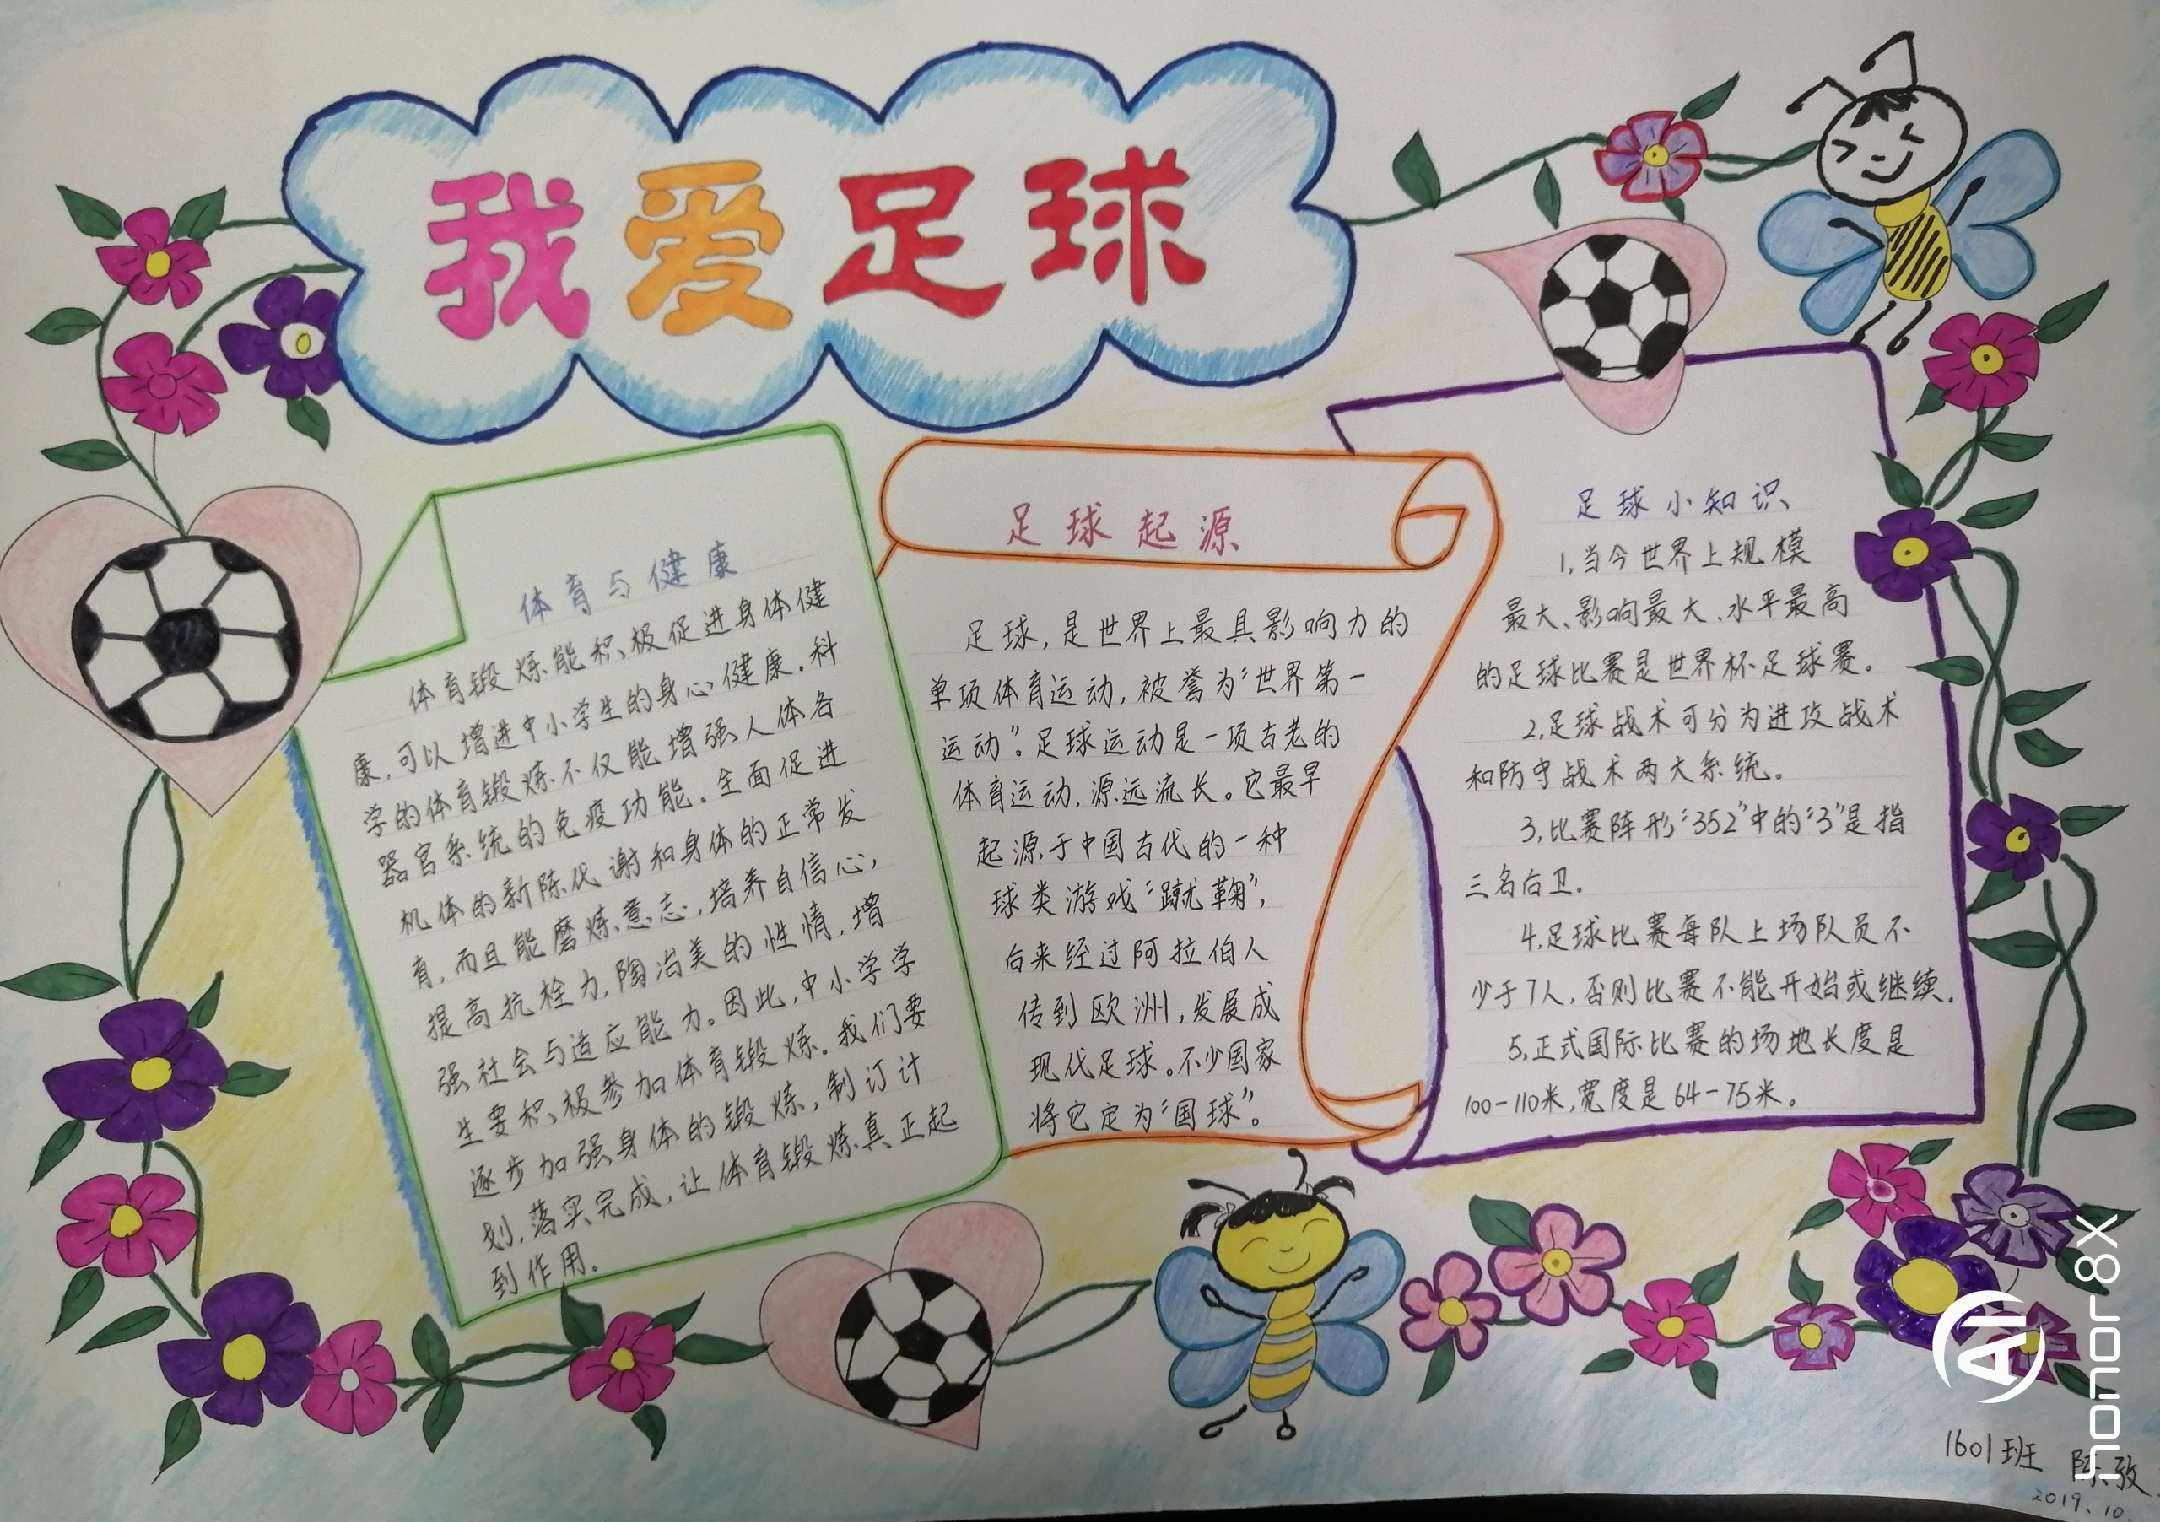 我爱足球
体育与健康
体育锻炼能积极促进身体健
康,可以增进中小学生的身心健康.科
学的体育锻炼不仅能增强人体各
器官系统的免疫功能.全面促进
机体的新陈代谢和身体的正常发
育,而且能磨炼意志,培养自信心,
提高抗栓力,陶冶美的性情,增
强社会与适应能力。因此,中小学学
生要积极参加体育锻炼.我们要
逐步加强身体的锻炼,制订计
划,落实完成,让体育锻炼真正起
到作用.
足球起源
足球,是世界上最具影响力的
单项体育运动,被誉为“世界第一
运动”。足球运动是一项古老的
体育运动,源远流长。它最早
起源于中国古代的一种
球类游戏“蹴鞠”,
后来经过阿拉伯人
传到欧洲,发展成
现代足球。不少国家
将它定为“国球”。
足球小知识
1,当今世界上规模
最大、影响最大、水平最高
的足球比赛是世界杯足球赛.
2,足球战术可分为进攻战术
和防守战术两大系统.
3,比赛阵形“352”中的“3”是指
三名后卫.
4,足球比赛每队上场队员不
少于7人,否则比赛不能开始或继续.
5,正式国际比赛的场地长度是
100-110米,宽度是64-75米。
1601班 陈
2019.10.
AI
honor 8X